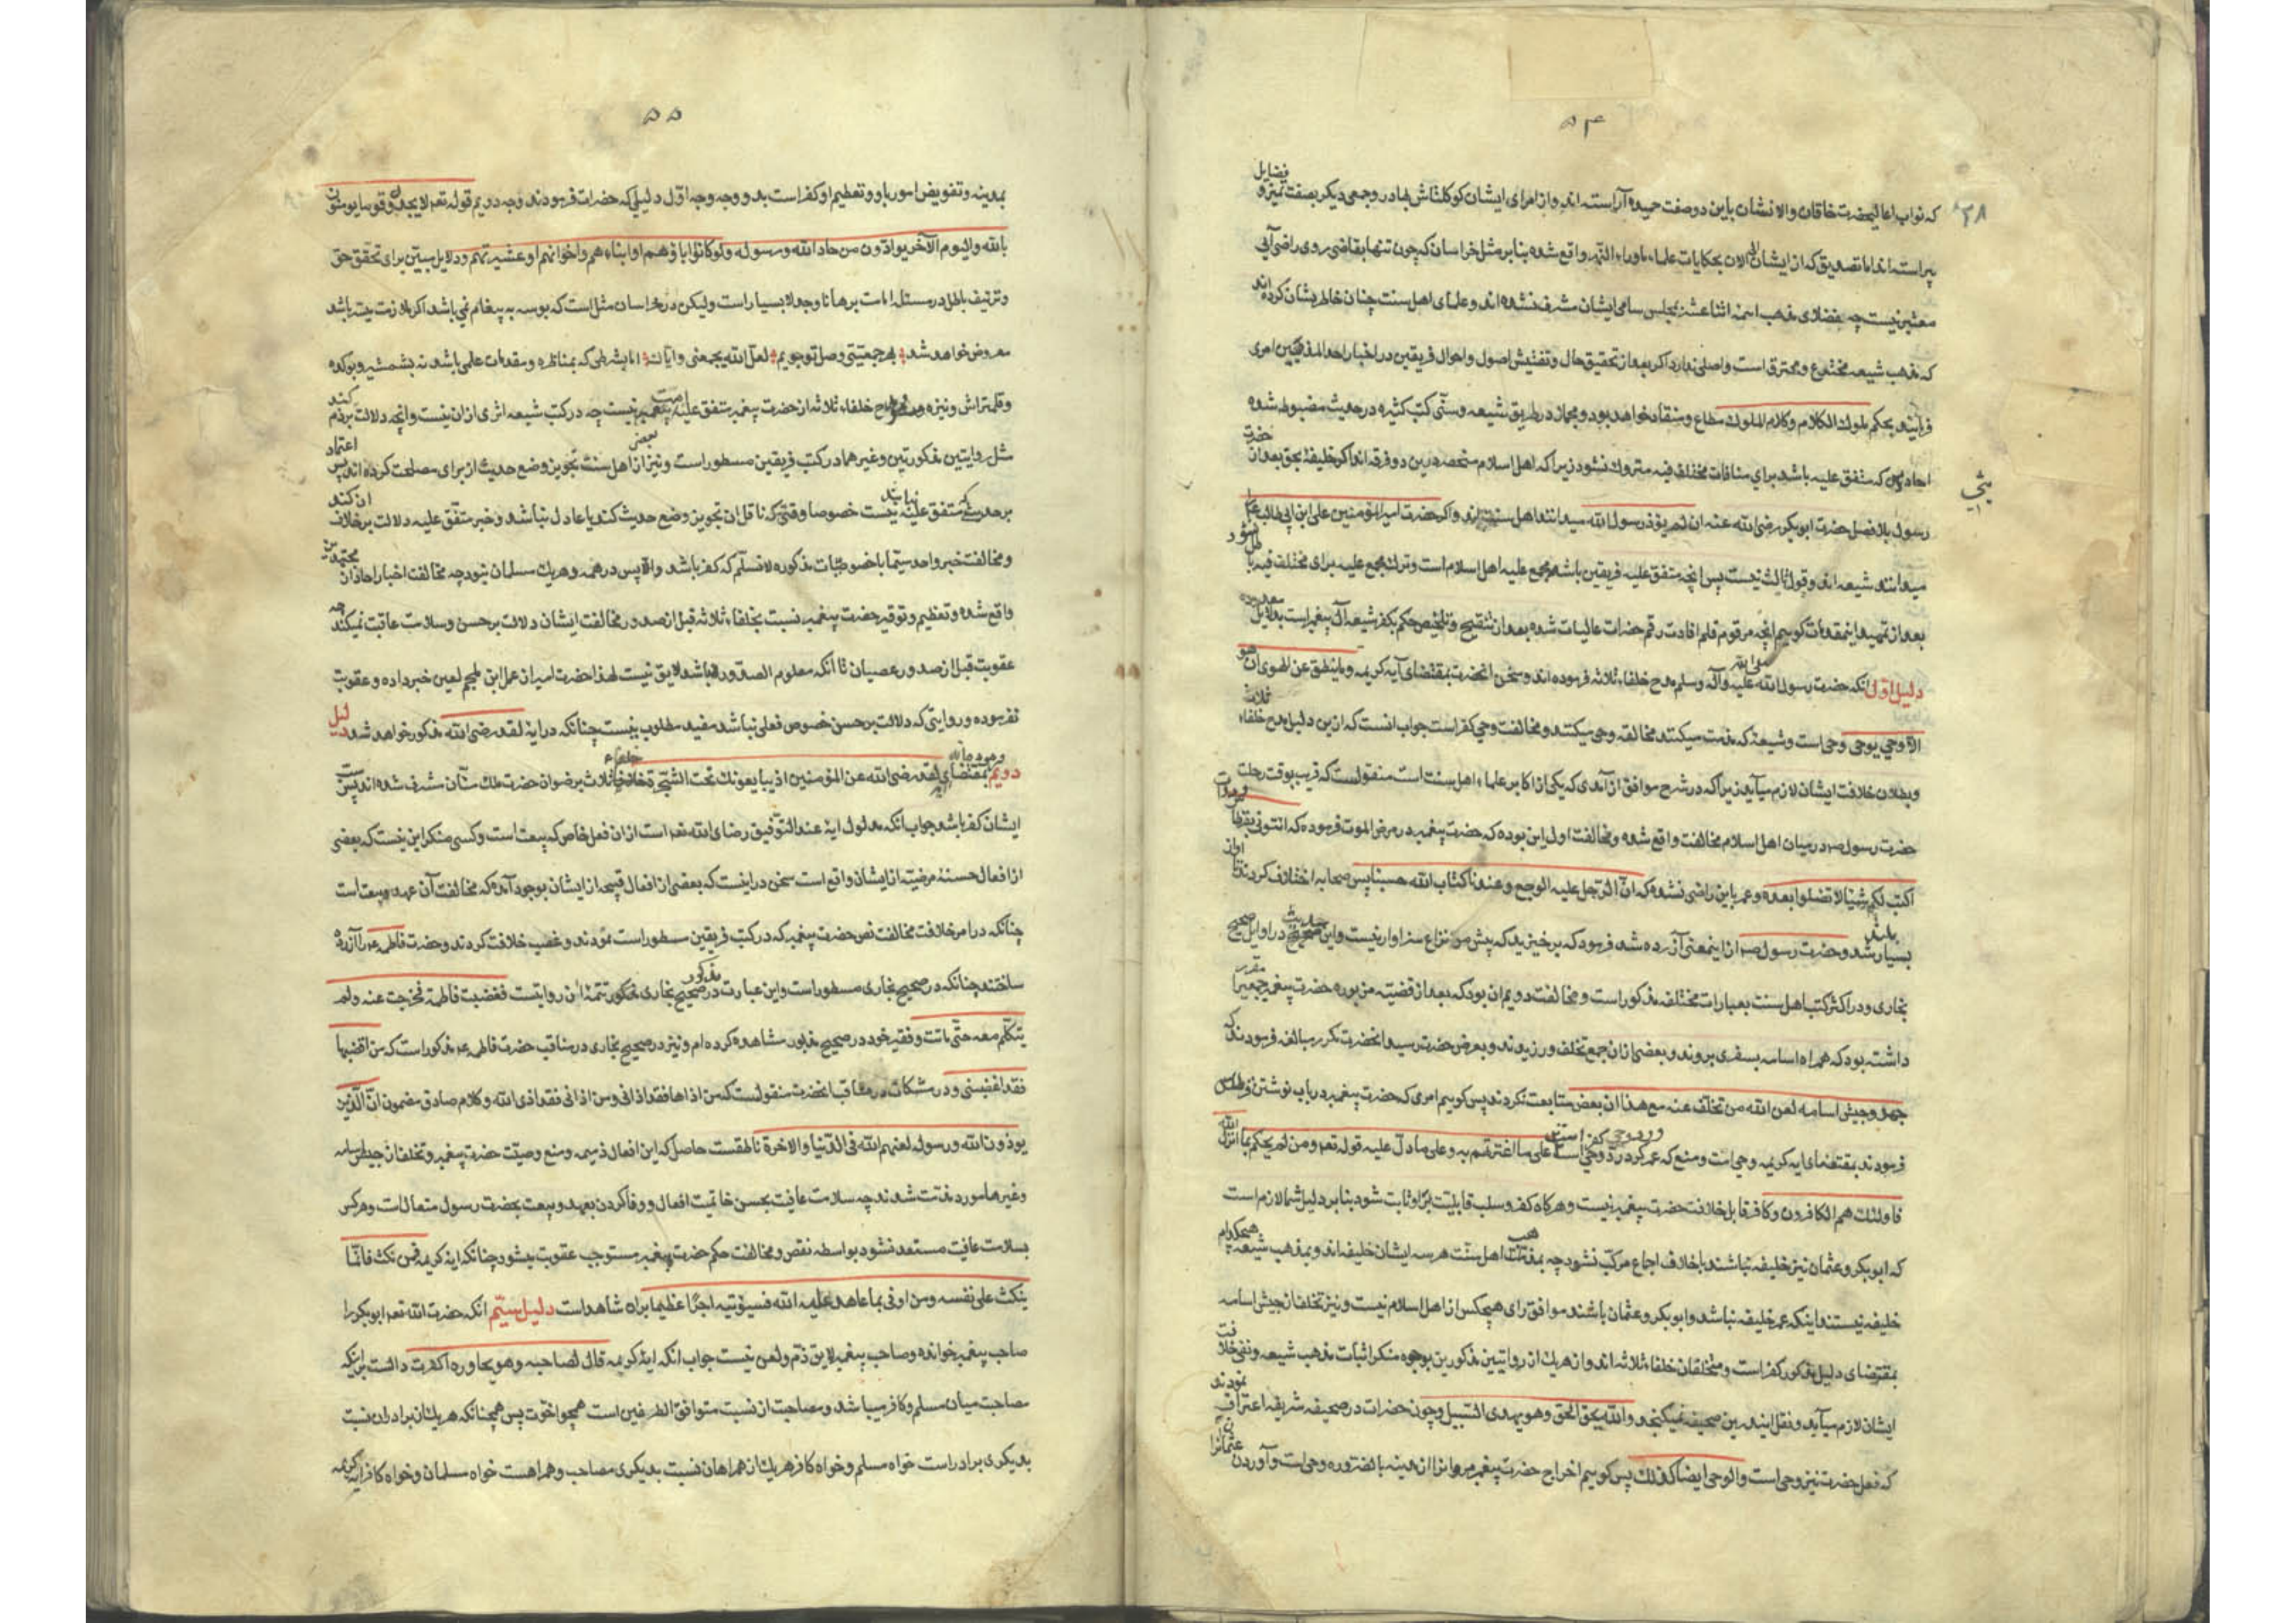 ۵۴
۳۸
فضایل
که نواب اعالیحضرت خاقان والانشان باین دو صفت حمیده آراسته اند و از امرای ایشان کوکلتاش بهادر وجمعی دیکر بصفت تمیز و
پیراسته اند اما تصدیق که از ایشان الی الان بحکایات علماء ماوراء النهر واقع شده بنابر مثل خراسان که چون تنها بقاضی روی راضی آیی
معتبر نیست چه فضلای مذهب ائمه اثنا عشر بمجلس سامی ایشان مشرف نشده اند وعلمای اهل سنت چنان خاطر نشان کرده اند
که مذهب شیعه مخترع و محترق است واصلی ندارد اکر بعد از تحقیق حال وتفتیش اصول واحوال فریقین در اختیار احد المذهبین امری
فرمایند بحکم ملوک الکلام وکلام الملوک مطاع ومنقاد خواهد بود ومجاز در طریق شیعه وسنّی کتب کثیره در حدیث مضبوط شده
احادیثی که متفق علیه باشد برای منافات مختلف فیه متروک نشود زیرا که اهل اسلام منحصر در این دو فرقه اند اکر خلیفۀ بحق بعد از حضرت
رسول بلا فصل حضرت ابوبکر رضی الله عنه ان لم یؤذ رسول الله میدانند اهل سنت اند واکر حضرت امیر المؤمنین علی ابن ابی طالب
میدانند شیعه اند وقول ثالث نیست پس انچه متفق علیه فریقین باشد مجمع علیه اهل اسلام است وترک مجمع علیه برای مختلف فیه
بعد از تمهید اینمقدمات کوییم انچه مرقوم قلم افادت رقم حضرات عالیات شده بعد از تنقیح وتلخیص حکم بکفر شیعه آل پیغمبر است بدلایل معدوده
دلیل اول انکه حضرت رسول الله صلی الله علیه وآله وسلم مدح خلفاء ثلاثه فرموده اند وسخن انحضرت بمقتضای آیه کریمه وما ینطق عن الهوی ان هو
الا وحی یوحی وحی است وشیعه که مذمت میکنند مخالفه وحی میکنند ومخالفت وحی کفر است جواب انست که ازین دلیل مدح خلفاء ثلاث
وبطلان خلافت ایشان لازم میآید زیرا که در شرح مواقف از آمدی که یکی از اکابر علماء اهل سنت است منقولست که قریب بوقت رحلت
حضرت رسول ص در میان اهل اسلام مخالفت واقع شده ومخالفت اول این بوده که حضرت پیغمبر در مرض الموت فرموده که ائتونی بقرطاس
اکتب لکم شیئا لا تضلوا بعده وعمر باین راضی نشده که ان الرجل علیه الوجع وعندنا کتاب الله حسبنا پس صحابه اختلاف کردند تا آواز
بسیار بلند شد وحضرت رسول ص از اینمعنی آزرده شد فرمود که برخیزید که پیش من نزاع سزاوار نیست واین حدیث در اوایل صحیح
بخاری ودر اکثر کتب اهل سنت بعبارات مختلفه مذکور است ومخالفت دویم ان بود که بعد از قضیه مزبوره حضرت پیغمبر جمعی را مقرر
داشته بود که همراه اسامه بسفری بروند وبعضی از ان جمع تخلف ورزیدند وبعرض حضرت رسید انحضرت مکرر مبالغه فرمودند که
جهزوا جیش اسامه لعن الله من تخلف عنه مع هذا ان بعض متابعت نکردند پس کوییم امری که حضرت پیغمبر در باب نوشتن قرطاس
فرمودند بمقتضای ایه کریمه وحی است ومنع که عمر کرد رد وحی است ورد وحی کفر است علی ما اعترفتم به وعلی ما دلّ علیه قوله تعم ومن لم یحکم بما انزل الله
فاولئک هم الکافرون وکافر قابل خلافت حضرت پیغمبر نیست وهرکاه کفر وسلب قابلیت بر او ثابت شود بنابر دلیل شما لازم است
که ابوبکر وعثمان نیز خلیفه نباشند بخلاف اجماع مرکب نشود چه بمذهب اهل سنّت هرسه ایشان خلیفه اند وبمذهب شیعه هیچکدام
خلیفه نیستند اینکه عمر خلیفه نباشد وابوبکر وعثمان باشند موافق رای هیچکس از اهل اسلام نیست ونیز تخلف از جیش اسامه
بمقتضای دلیل مذکور کفر است ومتخلفان خلفاء ثلاثه اند واز هریک از روایتین مذکورین بوجوه منکر اثبات مذهب شیعه ونفی خلافت
ایشان لازم میآید ونقل ایندرین صحیفه نمیکنجد والله یحق الحق وهو یهدی السّبیل وچون حضرات در صحیفه شریفه اعتراف نمودند
که فعل حضرت نیز وحی است والوحی ایضا کذلک پس کوییم اخراج حضرت پیغمبر مروانرا از مدینه بالضروره وحی است وآوردن عثمانرا
۵۵
بمدینه وتفویض امور باو وتعظیم او کفر است بدو وجه وجه اوّل دلیلی که حضرات فرمودند وجه دویم قوله تعم لا یجد قوما یومنون
بالله والیوم الآخر یوادّون من حاد الله ورسوله ولو کانوا اباؤهم او ابناءهم واخوانهم او عشیرتهم ودلایل مبین برای تحقق حق
وتزئیف باطل در مسئله امامت برهانا وجدلا بسیار است ولیکن در خراسان مثل است که بوسه به پیغام نمی باشد اکر ملازمت میسّر باشد
معروض خواهد شد بهر جمعیتی وصل تو جویم لعلّ الله یجمعنی وایاک اما بشرطی که بمناظره ومقدمات علمی باشد نه بشمشیر وبوکده
وقلمتراش ونیزه ومدح خلفاء ثلاثه از حضرت پیغمبر متفق علیه نیست چه در کتب شیعه اثری از ان نیست وانچه دلالت بر ذم کند
مثل روایتین مذکورتین وغیرهما در کتب فریقین مسطور است ونیز از بعضی اهل سنت تجویز وضع حدیث از برای مصلحت کرده اند پس اعتماد
بر حدیثی که متفق علیه نباشد نیست خصوصا وقتی که ناقل ان تجویز وضع حدیث کند یا عادل نباشد وخبر متفق علیه دلالت بر خلاف ان کند
ومخالفت خبر واحد سیّما باخصوصیّات مذکوره لا نسلم که کفر باشد والا پس در همه وهریک مسلمان نبود چه مخالفت اخبار احاد از مجتهدین
واقع شده وتعظیم وتوقیر حضرت پیغمبر نسبت بخلفاء ثلاثه قبل از صدور مخالفت ایشان دلالت بر حسن وسلامت عاقبت نمیکند چه
عقوبت قبل از صدور عصیان تا انکه معلوم الصدور باشد لایق نیست لهذا حضرت امیر از عمل ابن ملجم لعین خبر داده وعقوبت
نفرموده وروایتی که دلالت بر حسن خصوص فعلی نباشد مفید مطلوب نیست چنانکه در ایۀ لقد رضی الله مذکور خواهد شد دلیل
دویم بمقتضای لقد رضی الله عن المؤمنین اذ یبایعونک تحت الشّجرة خلفاء ثلاث برضوان حضرت ملک منّان مشرف شده اند پس سب
ایشان کفر باشد جواب انکه مدلول ایۀ عند التّوفیق رضای الله تعم است از ان فعل خاص که بیعت است وکسی منکر این نیست که بعضی
از افعال حسنۀ مرضیّه از ایشان واقع است سخن در اینست که بعضی از افعال قبیحه از ایشان بوجود آمده که مخالفت آن عهد وبیعت است
چنانکه در امر خلافت مخالفت نص حضرت پیغمبر که در کتب فریقین مسطور است نمودند وغصب خلافت کردند وحضرت فاطمه ع را آزرده
ساختند چنانکه در صحیح بخاری مسطور است واین عبارت در صحیح بخاری مذکور تتمۀ ان روایتست فغضبت فاطمة فخرجت عنه ولم
یتکلّم معه حتّی ماتت وفقیر خود در صحیح مذبور مشاهده کرده ام ونیز در صحیح بخاری در مناقب حضرت فاطمه ع مذکور است که من اغضبها
فقد اغضبنی ودر مشکات در مناقب انحضرت منقولست که من اذاها فقد اذانی ومن اذانی فقد اذی الله وکلام صادق مضمون انّ الّذین
یوذون الله ورسوله لعنهم الله فی الدّنیا والاخرة ناطقست حاصل که این افعال ذمیمه ومنع وصیّت حضرت پیغمبر وتخلف از جیش اسامه
وغیرها مورد مذمّت شدند چه سلامت عاقبت بحسن خاتمیت افعال ووفا کردن بعهد وبیعت بحضرت رسول متعال است وهرکس
بسلامت عاقبت مستعد نشود بواسطه نقض ومخالفت حکم حضرت پیغمبر مستوجب عقوبت میشود چنانکه ایه کریمه فمن نکث فانّما
ینکث علی نفسه ومن اوفی بما عاهد علیه الله فسیؤتیه اجرًا عظیما براه شاهد است دلیل سیّم انکه حضرت الله تعم ابوبکر را
صاحب پیغمبر خوانده وصاحب پیغمبر لایق ذم ولعن نیست جواب انکه ایه کریمه قال لصاحبه وهو یحاوره اکفرت دالست بر اینکه
مصاحبت میان مسلم وکافر میباشد ومصاحبت از نسبت متوافق الطرفین است همچو اخوّت پس همچنانکه هریک از برادران نسبت
بدیکری برادر است خواه مسلم وخواه کافر هریک از همراهان نسبت بدیکری مصاحب وهمراهست خواه مسلمان وخواه کافر ایه کریمه